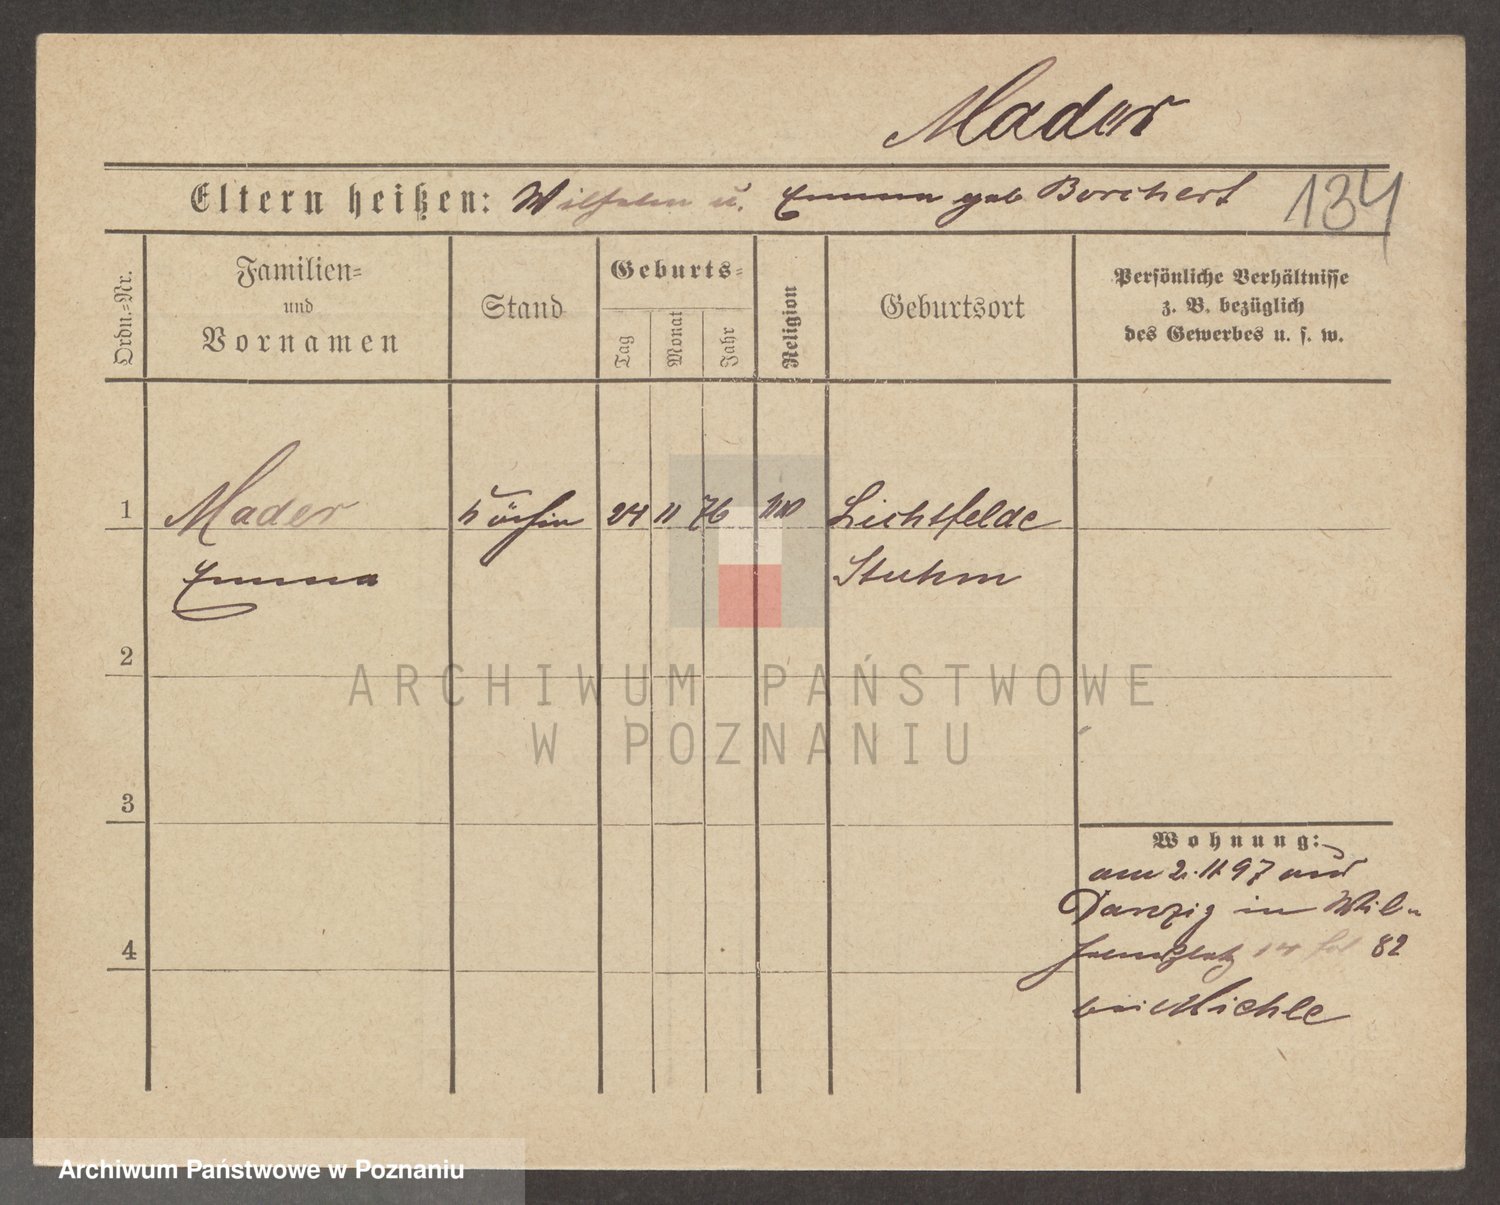 Mader
Eltern heißen: Wilhelm u. Emma geb Borchert 134
Ordn.-Nr.
Familien-
und
Vornamen
Stand
Geburts-
Tag
Monat
Jahr
Religion
Geburtsort
Persönliche Verhältnisse
z. B. bezüglich
des Gewerbes u. s. w.
1 Mader Köchin 24 11 76 Lichtfelde
Emma Stuhm
2
ARCHIWUM PAŃSTWOWE
W POZNANIU
3
Wohnung:
am 2. 11 97 aus
Danzig in Wil-
helmsplatz 14 82
4
bei Michle
Archiwum Państwowe w Poznaniu